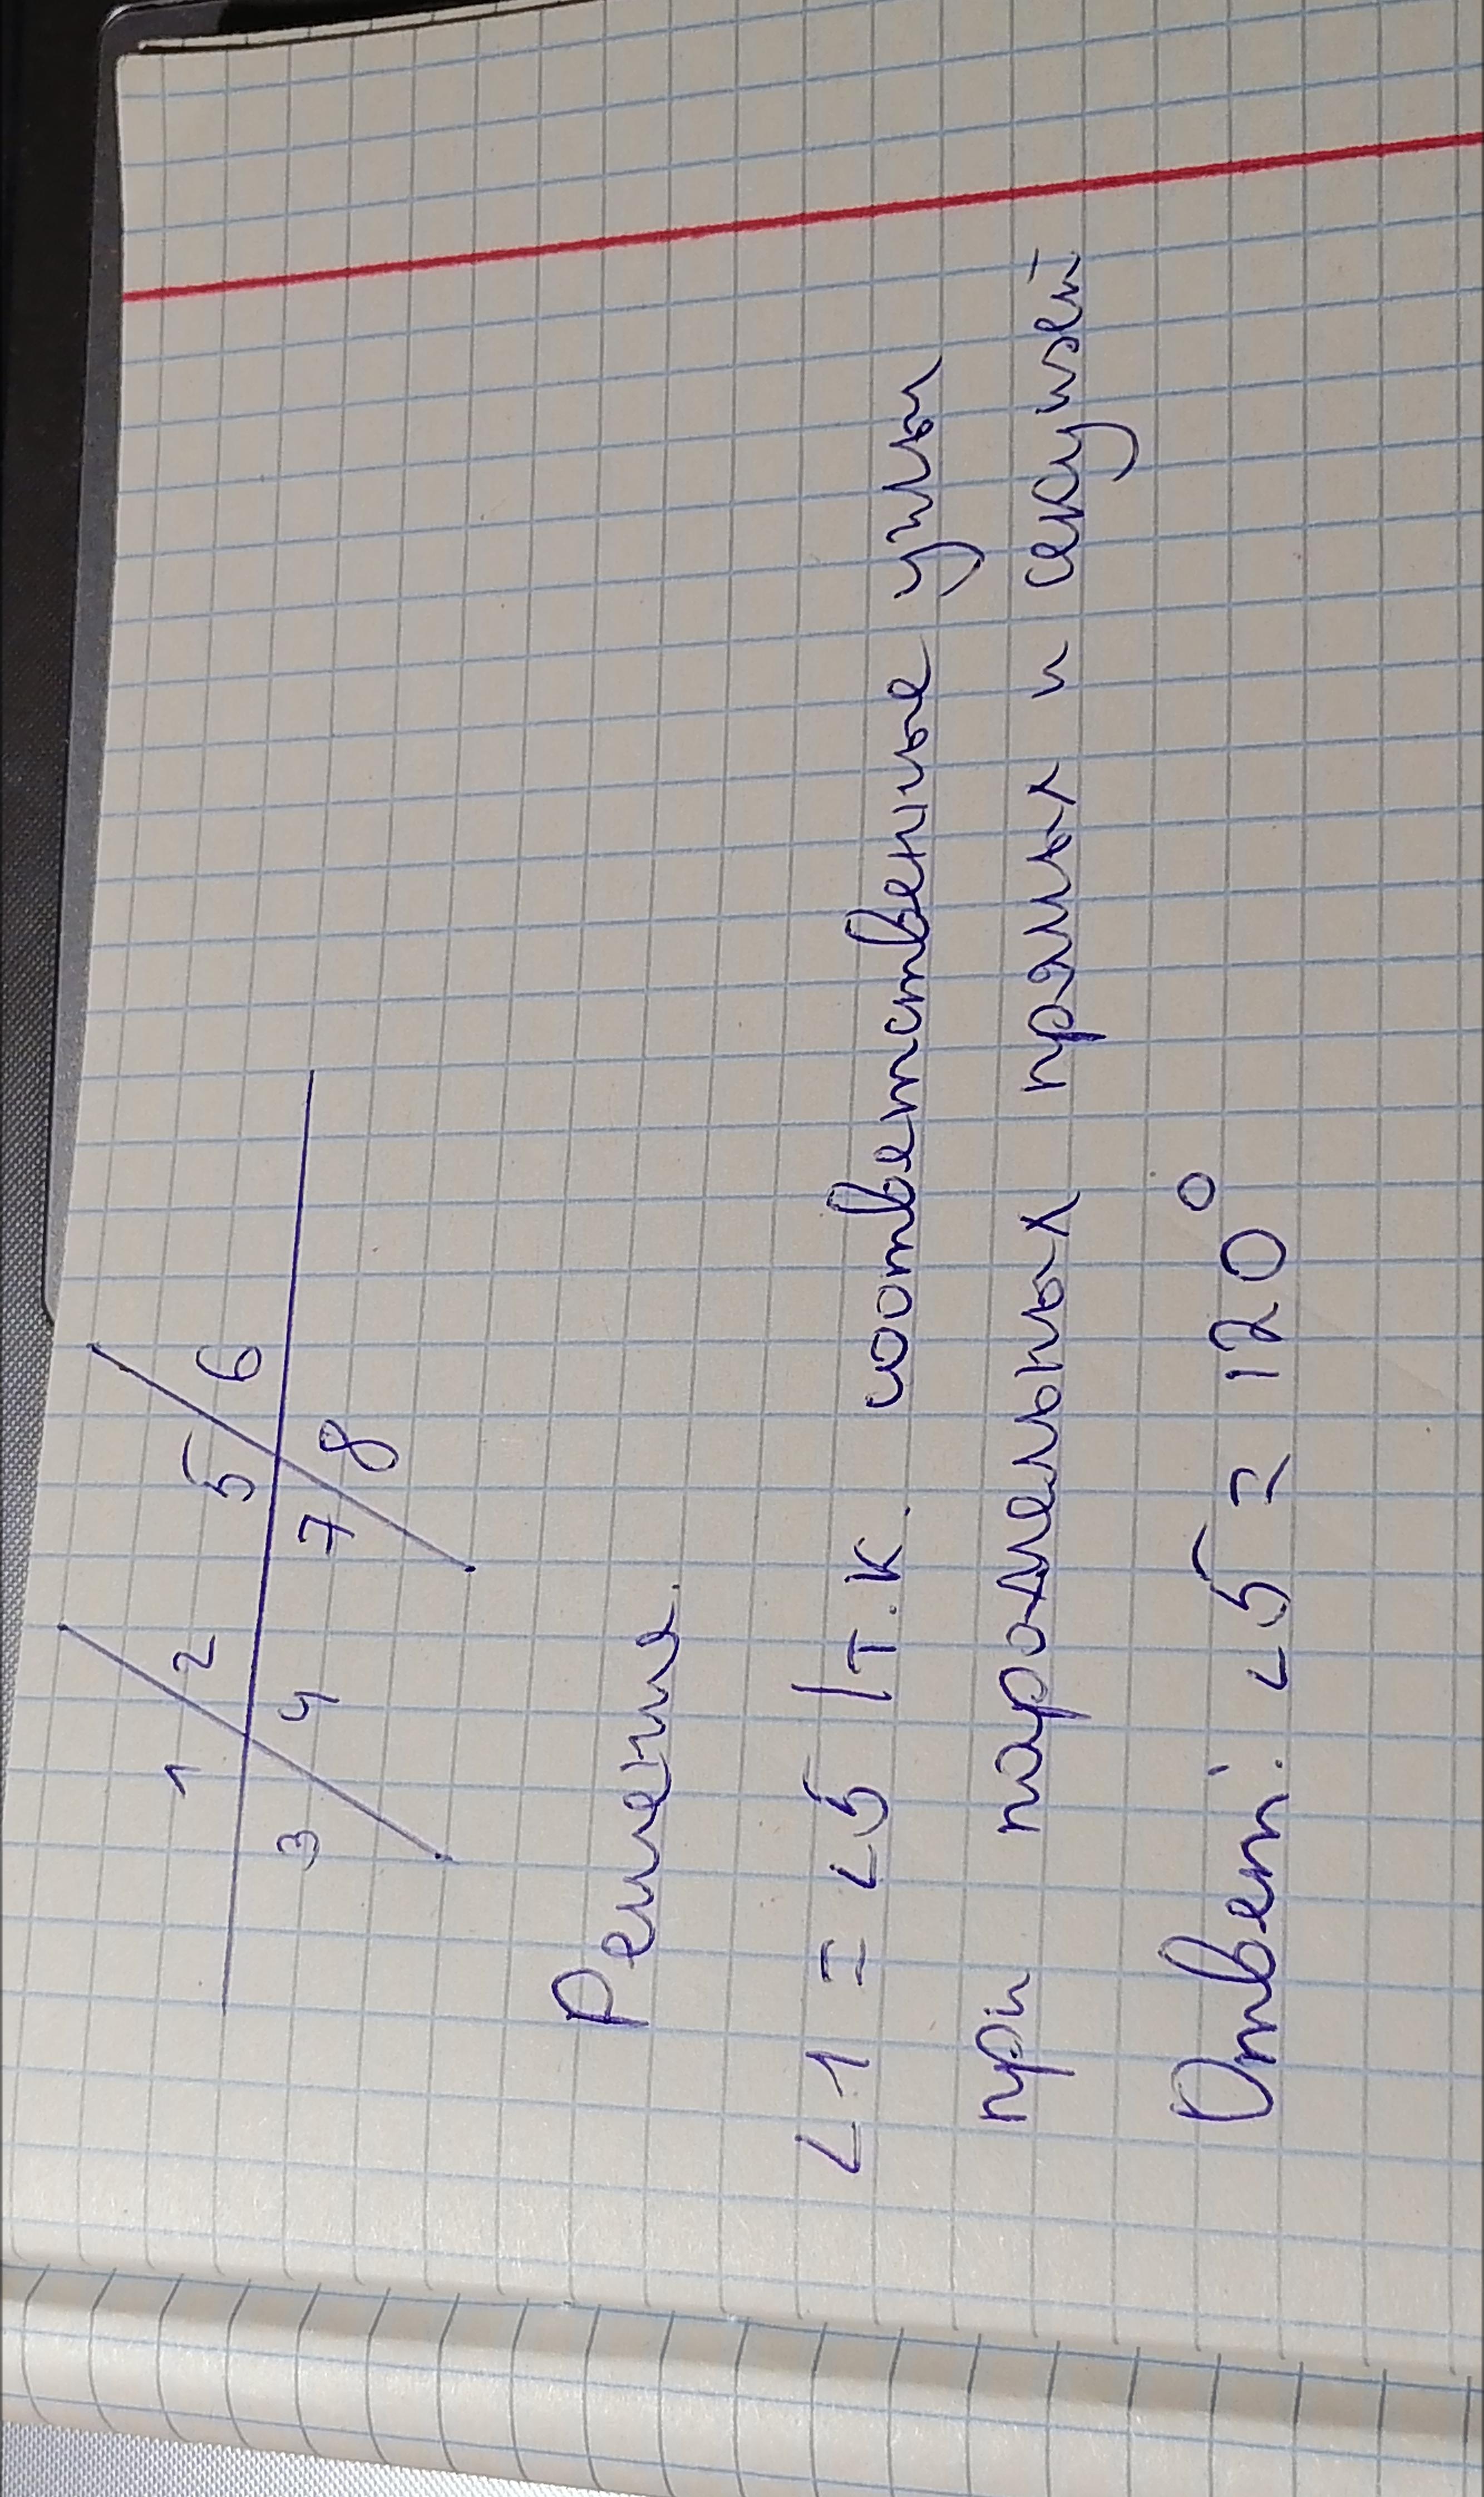 1 2 5 6
3 4 7 8
Решение.
∠1 = ∠5 /т.к. соответственные углы
при параллельных прямых и секущей
Ответ: ∠5 = 120°